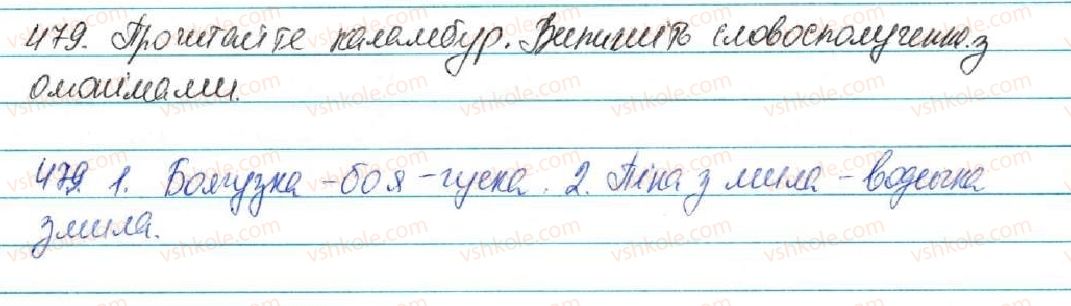 479. Прочитайте каламбур. Випишіть словосполучення з
омонімами.
479 1. Боягузка - боя - гуска. 2. Піна з мила - водичка
змила.